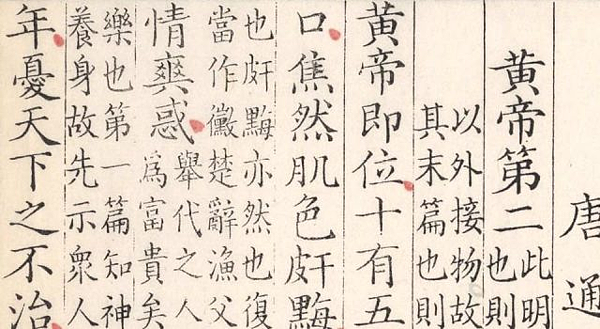 唐通
黄帝第二
此明
也則
以外接物故
其末篇也則
黄帝即位十有五
口焦然肌色皯黣
也皯黣亦然也復
當作黴楚辭漁父
情爽惑
舉代之人
爲富貴矣
樂也第一篇知神
養身故先示衆人
年憂天下之不治